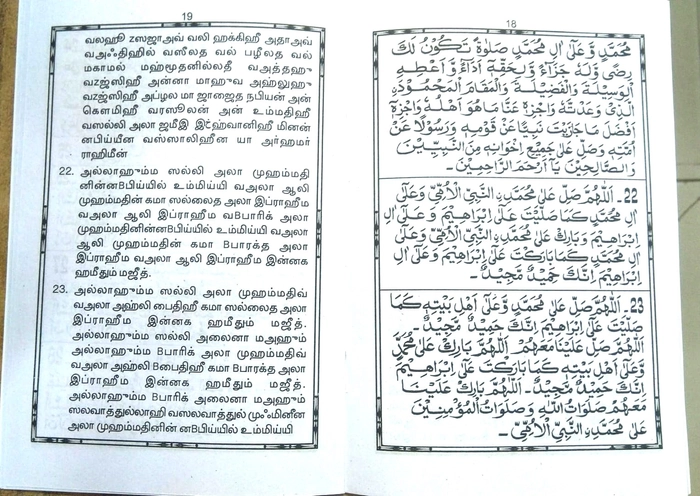 19
வலஹூ zஸஜாஅவ் வலி ஹக்கிஹீ அதாஅவ்
வஅஃதிஹில் வஸீலத வல் பழீலத வல்
மகாமல் மஹ்மூதனில்லதீ வஅத்தஹு
வzஜ்ஸிஹீ அன்னா மாஹுவ அஹ்லுஹு
வzஜ்ஸிஹீ அப்ழல மா ஜாஜைத நபியன் அன்
கௌமிஹீ வரஸூலன் அன் உம்மதிஹீ
வஸல்லி அலா ஜமீஇ இஃக்வானிஹீ மினன்
னபிய்யீன வஸ்ஸாலிஹீன யா அர்ஹமர்
ராஹிமீன்
22. அல்லாஹும்ம ஸல்லி அலா முஹம்மதி
னின்னBபிய்யில் உம்மிய்யி வஅலா ஆலி
முஹம்மதின் கமா ஸல்லைத அலா இப்ராஹீம
வஅலா ஆலி இப்ராஹீம வBபாரிக் அலா
முஹம்மதினின்னBபிய்யில் உம்மிய்யி வஅலா
ஆலி முஹம்மதின் கமா Bபாரக்த அலா
இப்ராஹீம வஅலா ஆலி இப்ராஹீம இன்னக
ஹமீதும் மஜீத்.
23. அல்லாஹும்ம ஸல்லி அலா முஹம்மதிவ்
வஅலா அஹ்லி பைதிஹீ கமா ஸல்லைத அலா
இப்ராஹீம இன்னக ஹமீதும் மஜீத்.
அல்லாஹும்ம ஸல்லி அலைனா மஅஹும்
அல்லாஹும்ம Bபாரிக் அலா முஹம்மதிவ்
வஅலா அஹ்லி Bபைதிஹீ கமா Bபாரக்த அலா
இப்ராஹீம இன்னக ஹமீதும் மஜீத்.
அல்லாஹும்ம Bபாரிக் அலைனா மஅஹும்
ஸலவாத்துல்லாஹி வஸலவாத்துல் முஃமினீன
அலா முஹம்மதினின் னBபிய்யில் உம்மிய்யி
18
مُحَمَّدٍ وَّعَلٰى اٰلِ مُحَمَّدٍ صَلٰوةً تَكُوْنُ لَكَ
رِضًى وَّلَهٗ جَزَآءً وَّلِحَقِّهٖ اَدَآءً وَّاَعْطِهِ
الْوَسِيْلَةَ وَالْفَضِيْلَةَ وَالْمَقَامَ الْمَحْمُوْدَ
الَّذِىْ وَعَدْتَّهٗ وَاجْزِهٖ عَنَّا مَاهُوَ اَهْلُهٗ وَاجْزِهٖ
اَفْضَلَ مَاجَازَيْتَ نَبِيًّا عَنْ قَوْمِهٖ وَرَسُوْلًا عَنْ
اُمَّتِهٖ وَصَلِّ عَلٰى جَمِيْعِ اِخْوَانِهٖ مِنَ النَّبِيِّيْنَ
وَالصَّالِحِيْنَ يَآ اَرْحَمَ الرَّاحِمِيْنَ۔
22۔ اَللّٰهُمَّ صَلِّ عَلٰى مُحَمَّدِ ۨالنَّبِىِّ الْاُمِّىِّ وَعَلٰى
اٰلِ مُحَمَّدٍ كَمَا صَلَّيْتَ عَلٰى اِبْرَاهِيْمَ وَعَلٰى اٰلِ
اِبْرَاهِيْمَ وَبَارِكْ عَلٰى مُحَمَّدِ ۨالنَّبِىِّ الْاُمِّىِّ وَعَلٰى
اٰلِ مُحَمَّدٍ كَمَا بَارَكْتَ عَلٰى اِبْرَاهِيْمَ وَعَلٰى اٰلِ
اِبْرَاهِيْمَ اِنَّكَ حَمِيْدٌ مَّجِيْدٌ۔
23۔ اَللّٰهُمَّ صَلِّ عَلٰى مُحَمَّدٍ وَّعَلٰى اَهْلِ بَيْتِهٖ كَمَا
صَلَّيْتَ عَلٰى اِبْرَاهِيْمَ اِنَّكَ حَمِيْدٌ مَّجِيْدٌ۔
اَللّٰهُمَّ صَلِّ عَلَيْنَا مَعَهُمْ اَللّٰهُمَّ بَارِكْ عَلٰى مُحَمَّدٍ
وَّعَلٰى اَهْلِ بَيْتِهٖ كَمَا بَارَكْتَ عَلٰى اِبْرَاهِيْمَ
اِنَّكَ حَمِيْدٌ مَّجِيْدٌ۔ اَللّٰهُمَّ بَارِكْ عَلَيْنَا
مَعَهُمْ صَلَوَاتُ اللّٰهِ وَصَلَوَاتُ الْمُؤْمِنِيْنَ
عَلٰى مُحَمَّدِ ۨالنَّبِىِّ الْاُمِّىِّ۔